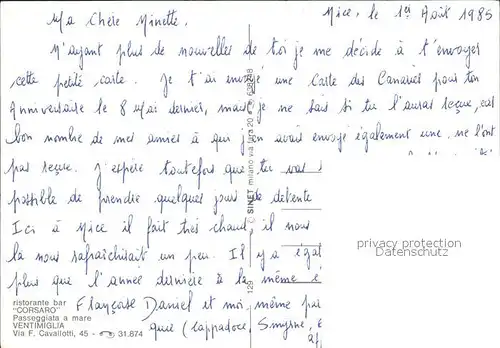 Nice, le 1er Août 1985
Ma Chère Minette.
N'ayant plus de nouvelles de toi je me décide à t'envoyer
cette petite carte. Je t'ai envoyé une Carte des Canaries pour ton
Anniversaire le 8 Mai dernier, mais je ne sais si tu l'auras reçue, car
bon nombre de mes amies à qui j'en avais envoyé également une ne l'ont
pas reçue. J'espère toutefois que tu vas
possible de prendre quelques jours de détente
Ici à Nice il fait très chaud, il nous
là nous rafraichirait un peu. Il y a égal
plus que l'année dernière à la même é
Françoise Daniel et moi même
(Cappadoce, Smyrne, e
ristorante bar
"CORSARO"
Passeggiata a mare
VENTIMIGLIA
Via F. Cavallotti, 45 - 31.874
129 © SINET milano via lara
privacy protection
Datenschutz